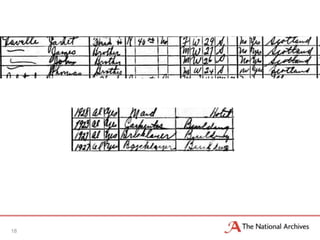 Janet Head R 40 no F W 29 S no Yes Scotland
James Brother M W 27 S no Yes Scotland
John Brother M W 26 S No Yes Scotland
Thomas Brother M W 24 S no Yes Scotland
1928 al Yes Maid Hotel
1923 al Yes Carpenter Building
1927 al Yes Bricklayer Building
1927 al Yes Bricklayer Building
18
The National Archives